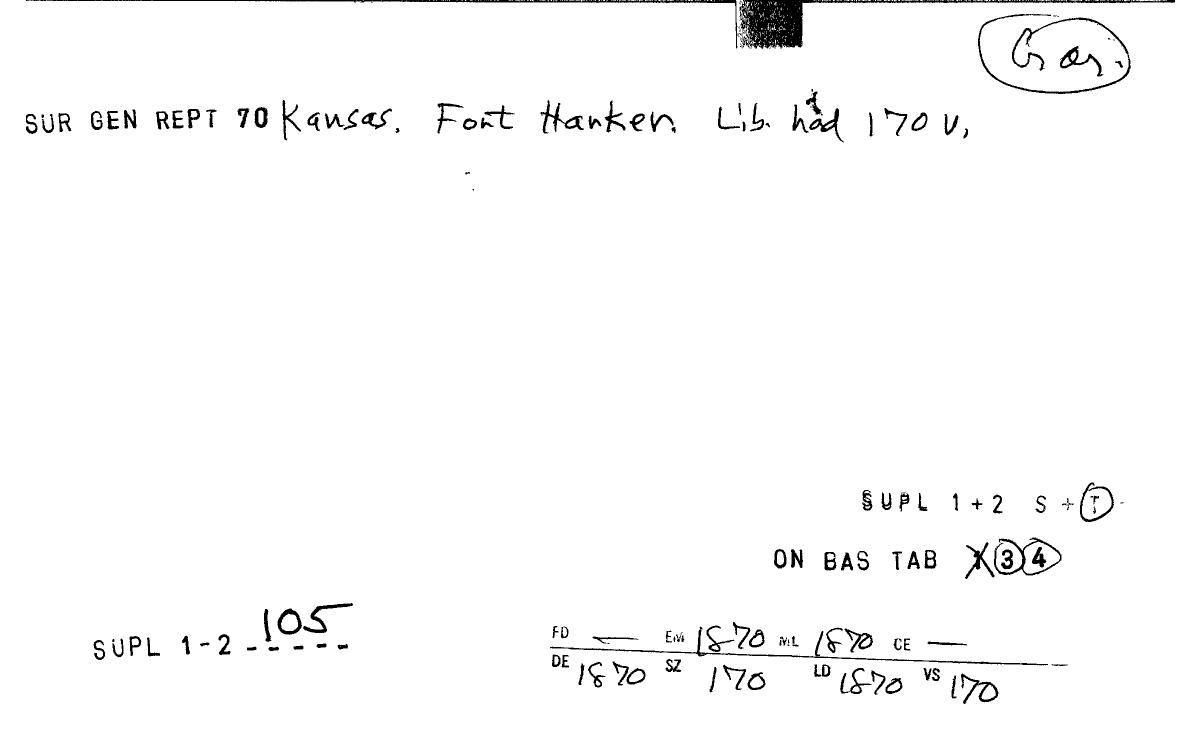 SUR GEN REPT 70 Kansas. Fort Hanker. Lib. had 170 v.
SUPL 1+2 S + T
ON BAS TAB 3 4
SUPL 1-2 105
FD — EM 1870 ML 1870 CE —
DE 1870 SZ 170 LD 1870 VS 170